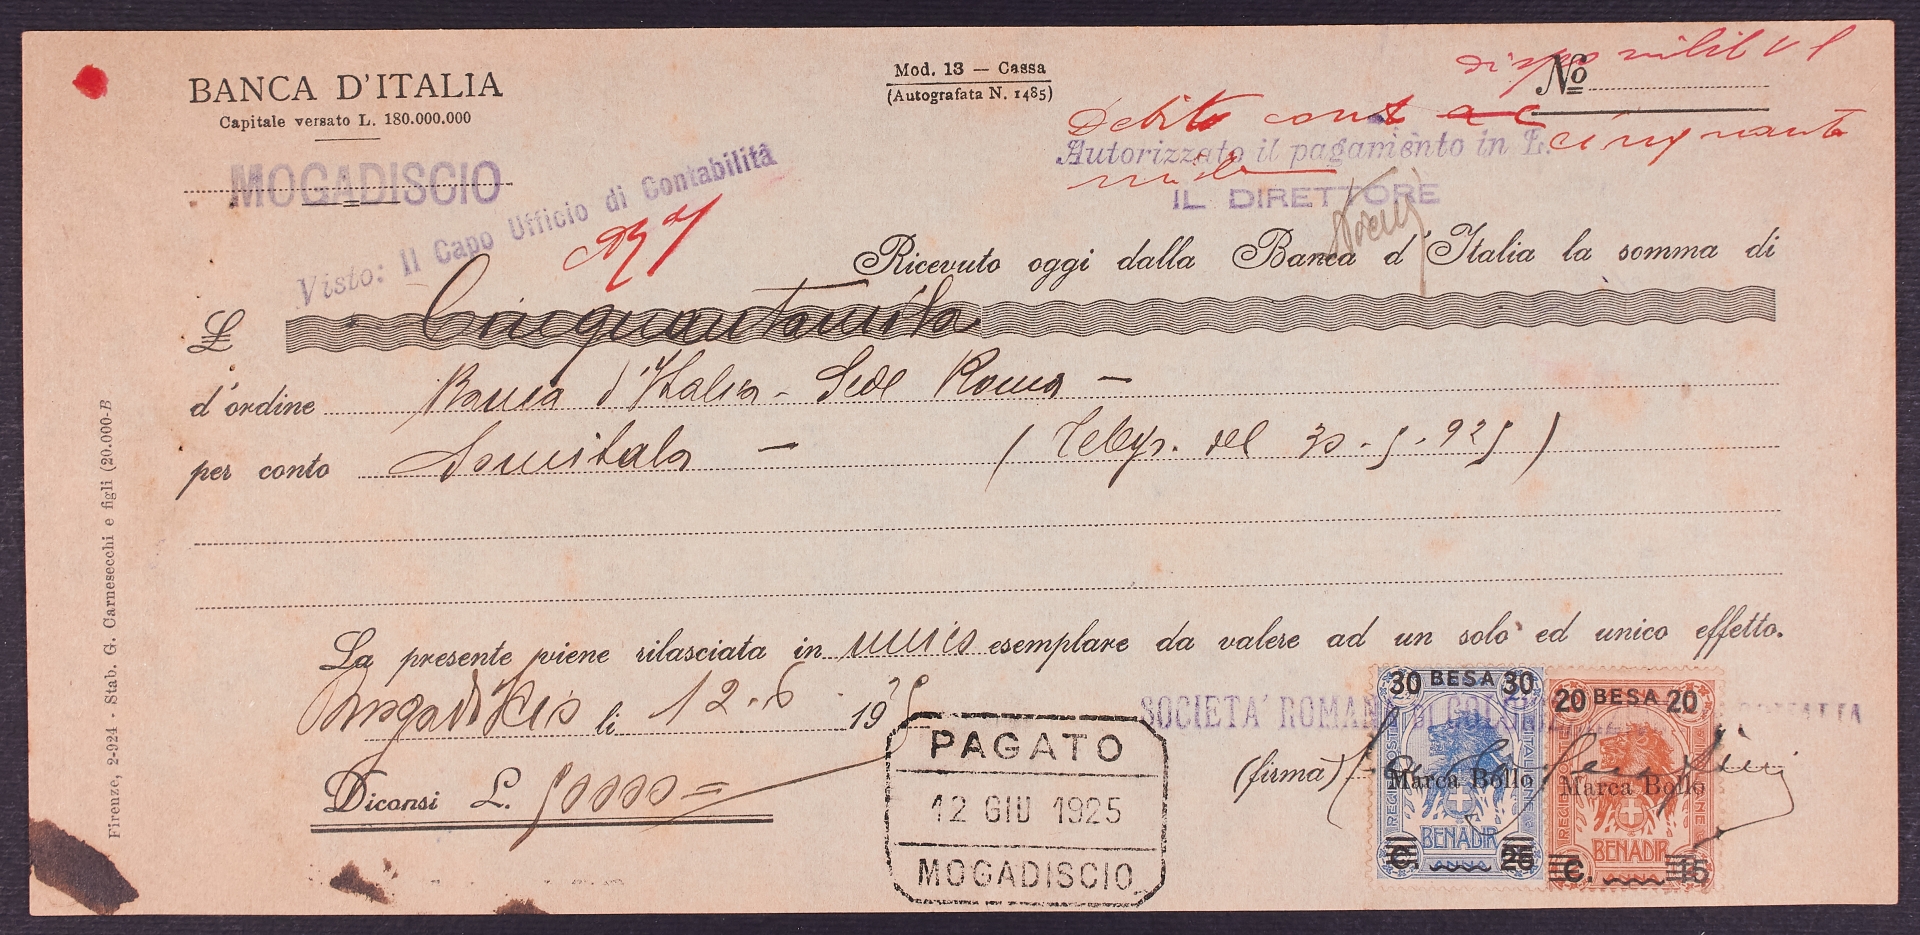 BANCA D'ITALIA
Capitale versato L. 180.000.000
MOGADISCIO
Mod. 13 — Cassa
(Autografata N. 1485)
No
Debito cont
Autorizzato il pagamento in L. cinquanta
mila
IL DIRETTORE
Visto: Il Capo Ufficio di Contabilità
Ricevuto oggi dalla Banca d'Italia la somma di
L. Cinquantamila
d'ordine Banca d'Italia - Sede Roma —
per conto Somitala — (Telegr. del 30-5-925)
La presente viene rilasciata in unico esemplare da valere ad un solo ed unico effetto.
Mogadiscio li 12-6 1925
SOCIETA' ROMANA DI
(firma)
Diconsi L. 50000=
PAGATO
12 GIU 1925
MOGADISCIO
30 BESA 30
REGIE POSTE ITALIANE
Marca Bollo
BENADIR
C. 25
20 BESA 20
Marca Bollo
BENADIR
C. 15
Firenze, 2-924 - Stab. G. Carnesecchi e figli (20.000-B